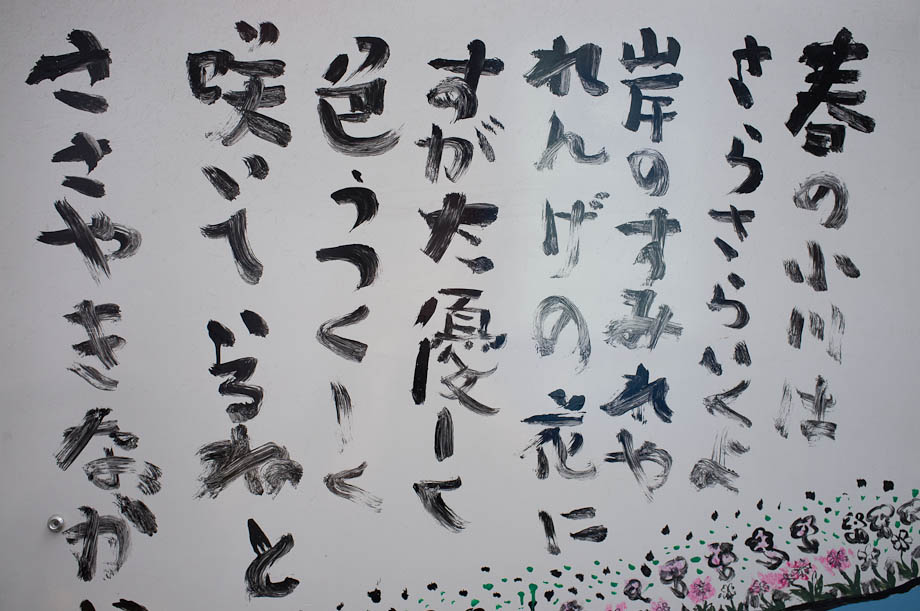 春の小川は
さらさらいくよ
岸のすみれや
れんげの花に
すがた優しく
色うつくしく
咲いているねと
ささやきなが